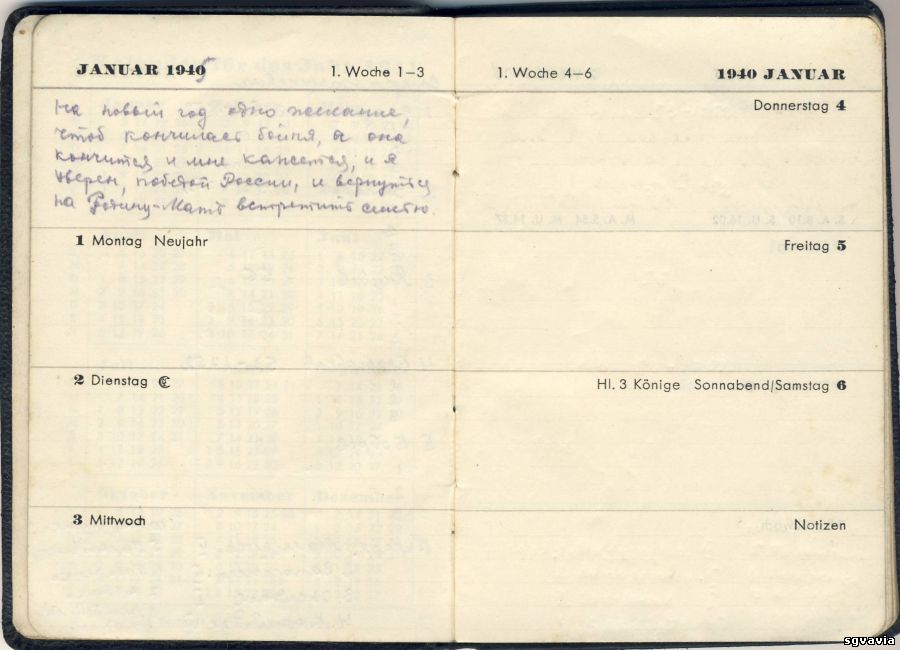 JANUAR 1945
1. Woche 1–3
На новый год одно желание,
чтоб кончилась бойня, а она
кончится и мне кажется, и я
уверен, победой России, и вернуться
на Родину-Мать встретить
1 Montag Neujahr
2 Dienstag
3 Mittwoch
1. Woche 4–6
1940 JANUAR
Donnerstag 4
Freitag 5
Hl. 3 Könige Sonnabend/Samstag 6
Notizen
sgvavia